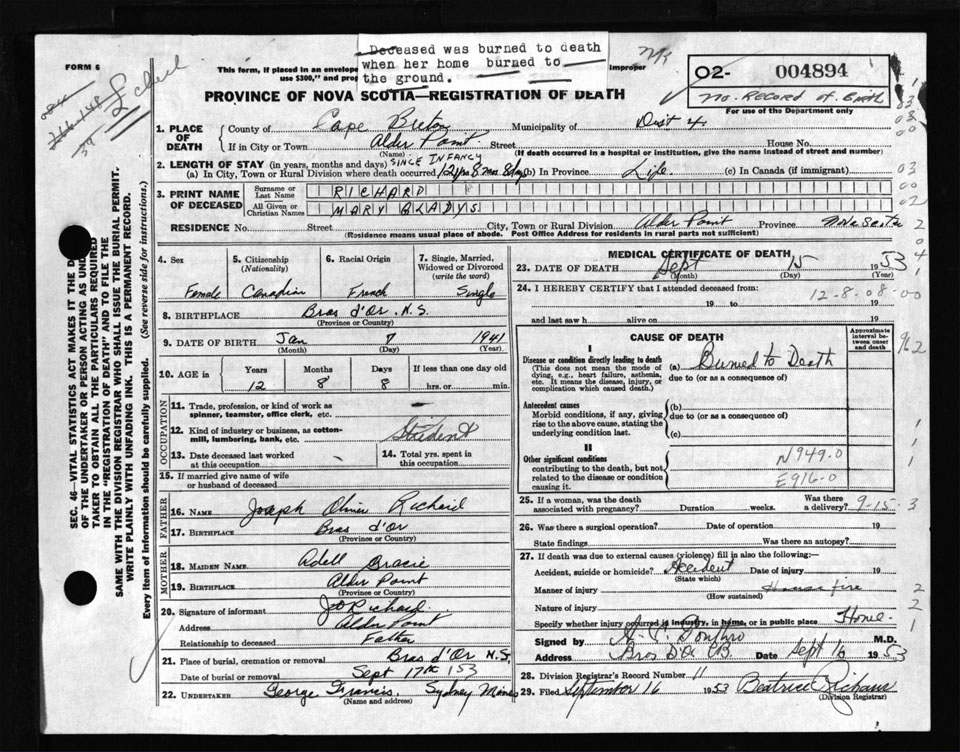 Deceased was burned to death
when her home burned to
the ground.
FORM 6
This form, if placed in an envelope
use $300," and
improper
02- 004894
No. Record of Birth
For use of the Department only
PROVINCE OF NOVA SCOTIA—REGISTRATION OF DEATH
1. PLACE OF DEATH
County of Cape Breton Municipality of Dist 4
If in City or Town Alder Point Street House No.
(Name) (If death occurred in a hospital or institution, give the name instead of street and number)
2. LENGTH OF STAY (in years, months and days) SINCE INFANCY
(a) In City, Town or Rural Division where death occurred 12 yrs 8 mos 8 days (b) In Province Life (c) In Canada (if immigrant)
3. PRINT NAME OF DECEASED
Surname or Last Name RICHARD
All Given or Christian Names MARY GLADYS
RESIDENCE No. Street City, Town or Rural Division Alder Point Province Nova Scotia
(Residence means usual place of abode. Post Office Address for residents in rural parts not sufficient)
4. Sex Female
5. Citizenship (Nationality) Canadian
6. Racial Origin French
7. Single, Married, Widowed or Divorced (write the word) Single
8. BIRTHPLACE Bras d'or N.S.
(Province or Country)
9. DATE OF BIRTH Jan 7 1941
(Month) (Day) (Year)
10. AGE in Years Months Days If less than one day old
12 8 8 hrs. or min.
OCCUPATION
11. Trade, profession, or kind of work as spinner, teamster, office clerk, etc.
12. Kind of industry or business, as cotton-mill, lumbering, bank, etc. Student
13. Date deceased last worked at this occupation
14. Total yrs. spent in this occupation
15. If married give name of wife or husband of deceased
FATHER
16. NAME Joseph Oliver Richard
17. BIRTHPLACE Bras d'Or
(Province or Country)
MOTHER
18. MAIDEN NAME Adell
19. BIRTHPLACE Alder Point
(Province or Country)
20. Signature of informant Jo Richard
Address Alder Point
Relationship to deceased Father
21. Place of burial, cremation or removal Bras d'Or N.S.
Date of burial or removal Sept 17th 153
22. UNDERTAKER George Francis Sydney Mines
(Name and address)
MEDICAL CERTIFICATE OF DEATH
23. DATE OF DEATH Sept 15 1953
(Month) (Day) (Year)
24. I HEREBY CERTIFY that I attended deceased from:
12-8-08-00
19 to 19
and last saw h alive on 19
CAUSE OF DEATH
Approximate interval between onset and death
I
Disease or condition directly leading to death
(This does not mean the mode of dying, e.g., heart failure, asthenia, etc. It means the disease, injury, or complication which caused death.)
(a) Burned to Death
due to (or as a consequence of)
Antecedent causes
Morbid conditions, if any, giving rise to the above cause, stating the underlying condition last.
(b)
due to (or as a consequence of)
(c)
II
Other significant conditions
contributing to the death, but not related to the disease or condition causing it.
N949.0
E916.0
25. If a woman, was the death associated with pregnancy? Duration weeks. Was there a delivery? 9-15-3
26. Was there a surgical operation? Date of operation 19
State findings Was there an autopsy?
27. If death was due to external causes (violence) fill in also the following:—
Accident, suicide or homicide? Accident Date of injury 19
(State which)
Manner of injury House fire
(How sustained)
Nature of injury
Specify whether injury occurred in industry, in home, or in public place Home
Signed by M.D.
Address Bras D'Or CB. Date Sept 16 1953
28. Division Registrar's Record Number 11
29. Filed September 16 1953 Beatrice
(Division Registrar)
SEC. 46—VITAL STATISTICS ACT MAKES IT THE
OF THE UNDERTAKER OR PERSON ACTING AS
TAKER TO OBTAIN ALL THE PARTICULARS REQUIRED
IN THE "REGISTRATION OF DEATH" AND TO FILE THE
SAME WITH THE DIVISION REGISTRAR WHO SHALL ISSUE THE BURIAL PERMIT.
WRITE PLAINLY WITH UNFADING INK. THIS IS A PERMANENT RECORD.
Every item of information should be carefully supplied. (See reverse side for instructions.)